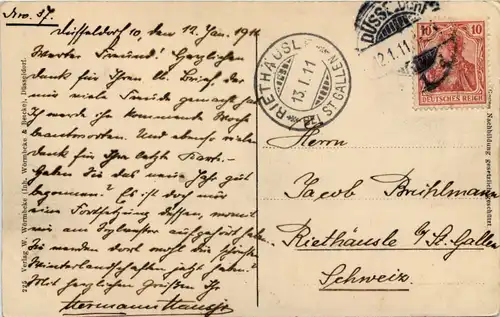 Nro. 37.
Düsseldorf 10, den 12. Jan. 1911
Werter Freund! Herzlichen
Dank für Ihren lb. Brief, der
mir viele Freude gemacht hat.
Ich werde ihn kommende Woche
beantworten. Und ebenso vielen
Dank für Ihre letzte Karte.
Haben Sie das neue Jahr gut
begonnen? Es ist doch nur
eine Fortsetzung dessen, womit
wir am Sylvester aufgehört haben.
Sie werden dort wohl die schönsten
Winterlandschaften jetzt haben?
Mit herzlichen Grüßen Ihr
Hermann
RIETHÄUSLE
13.I.11
ST GALLEN
DÜSSELDORF
12.1.11
10 10
DEUTSCHES REICH
Herrn
Jacob Brühlmann
Riethäusle b/St. Gallen
Schweiz.
225 Verlag W. Wörmbcke (Inh. Wörmbcke & Hercke), Düsseldorf.
Nachbildung gesetzlich geschützt.